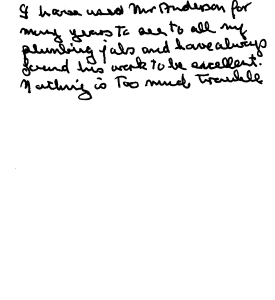 I have used Mr Anderson for
many years to see to all my
plumbing jobs and have always
found his work to be excellent.
Nothing is too much trouble